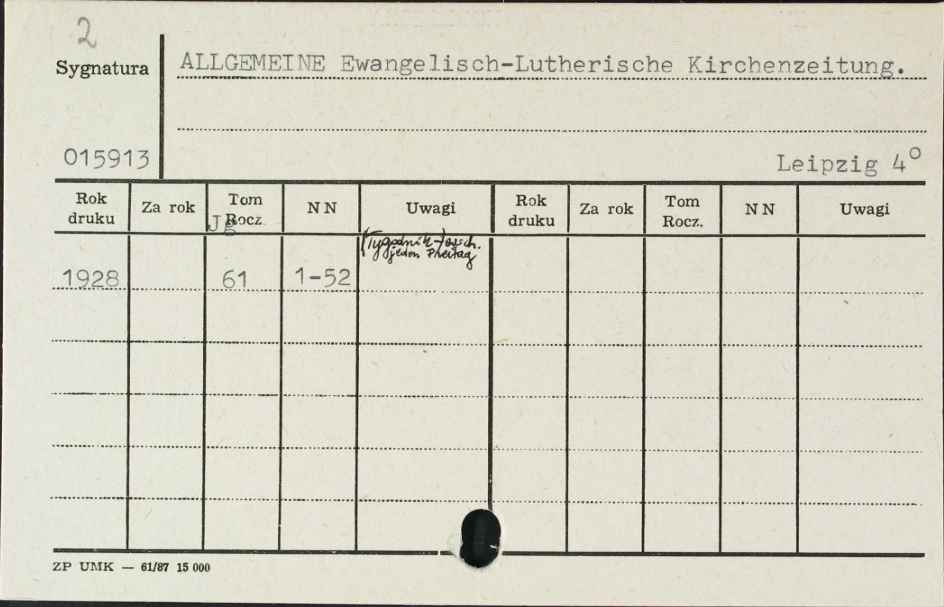 2
Sygnatura
ALLGEMEINE Ewangelisch-Lutherische Kirchenzeitung.
015913
Leipzig 4°
Rok druku Za rok Tom Rocz. NN Uwagi Rok druku Za rok Tom Rocz. NN Uwagi
Jg
(Tygodnik-) ersch.
jeden Freitag
1928 61 1-52
ZP UMK — 61/87 15 000